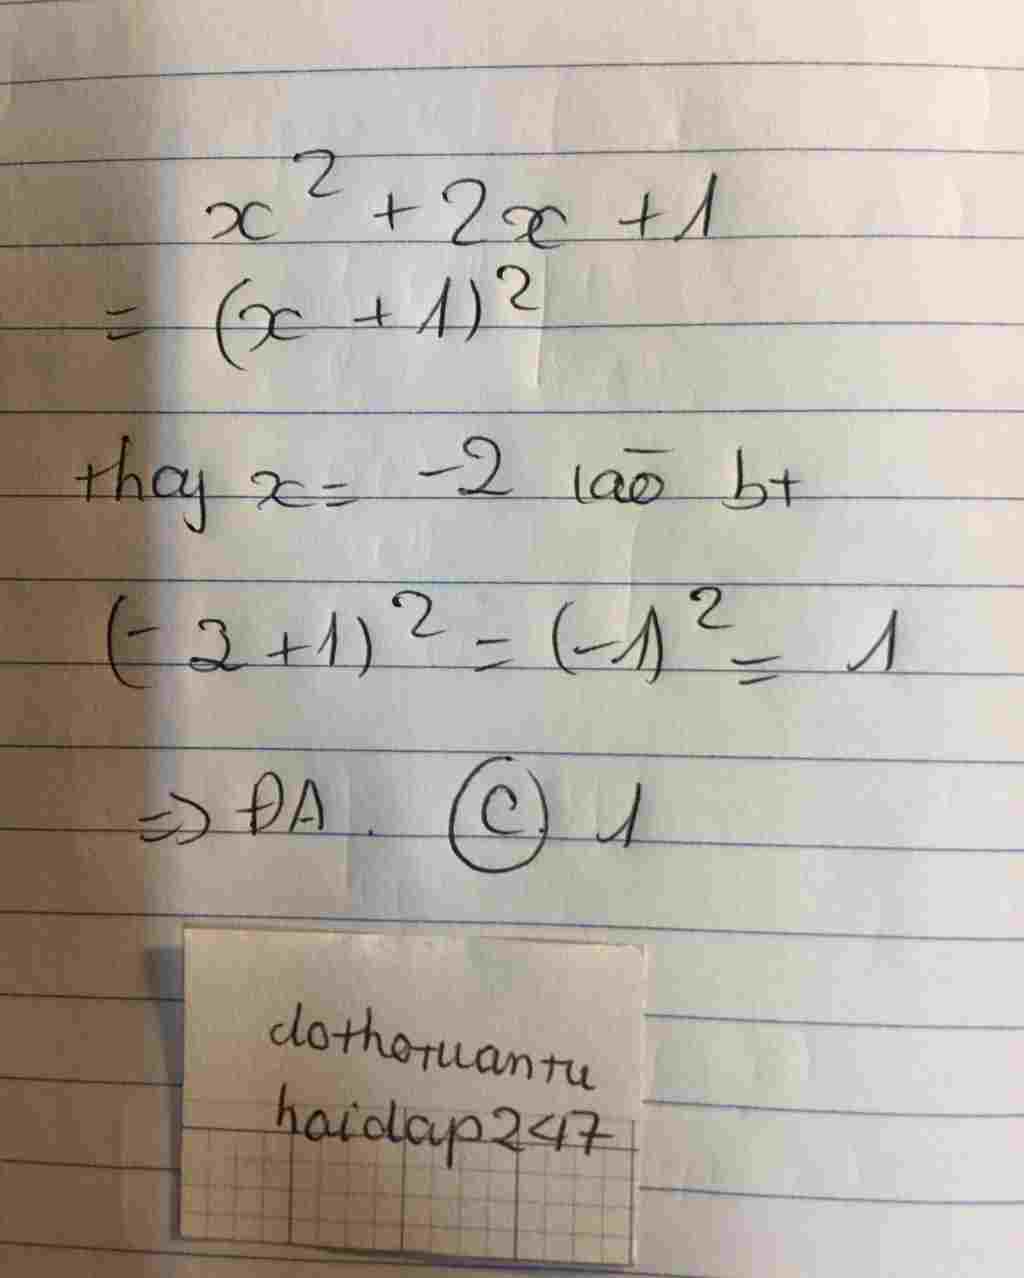 x² + 2x + 1
= (x + 1)²
thay x = -2 vào bt
(-2+1)² = (-1)² = 1
=> ĐA. C. 1
dothotuantu
haidap247